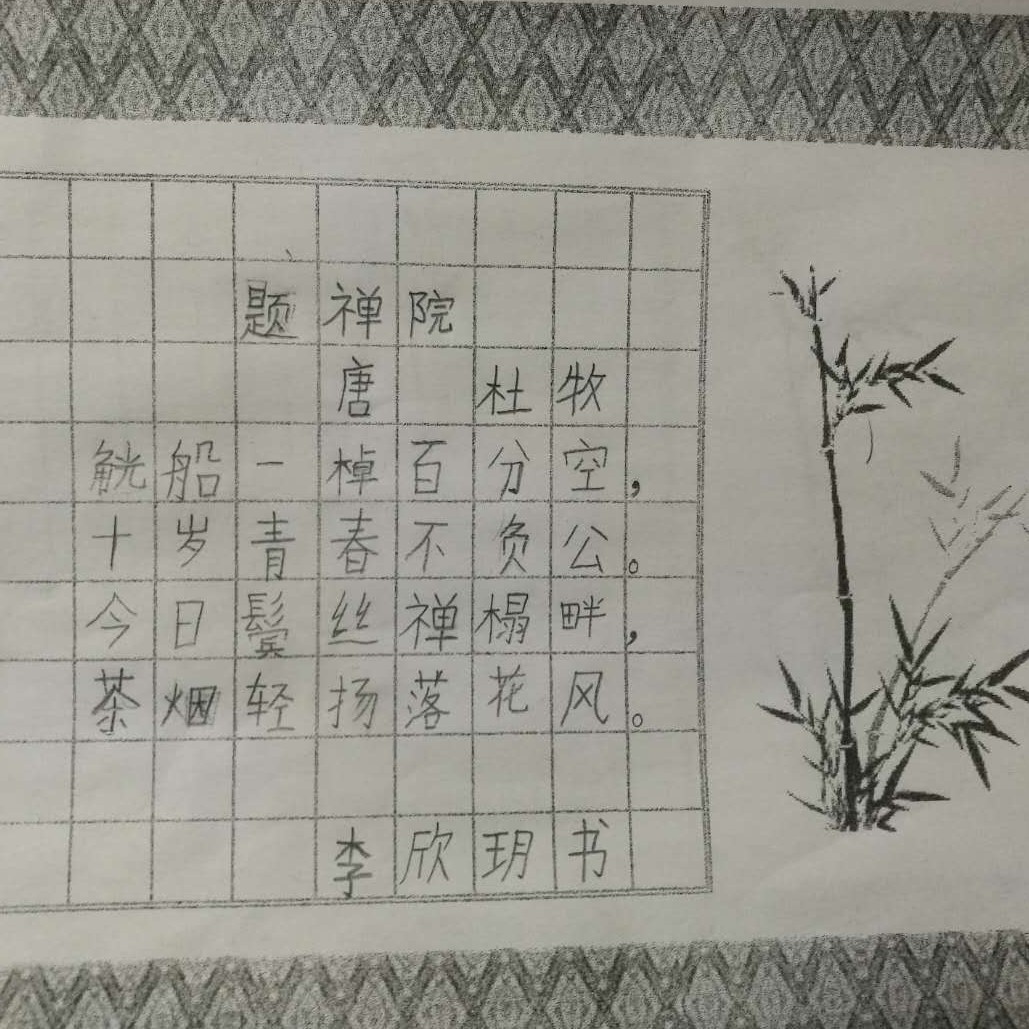 题禅院
唐 杜牧
觥船一棹百分空，
十岁青春不负公。
今日鬓丝禅榻畔，
茶烟轻扬落花风。
李欣玥书